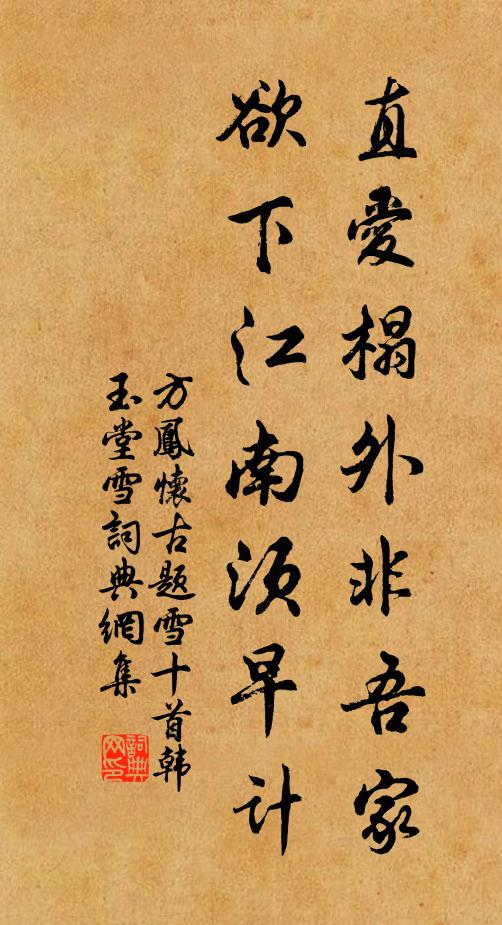 直愛榻外非吾家
欲下江南須早計
方鳳懷古題雪十首韩
玉堂雪詞典網集
詞典網印